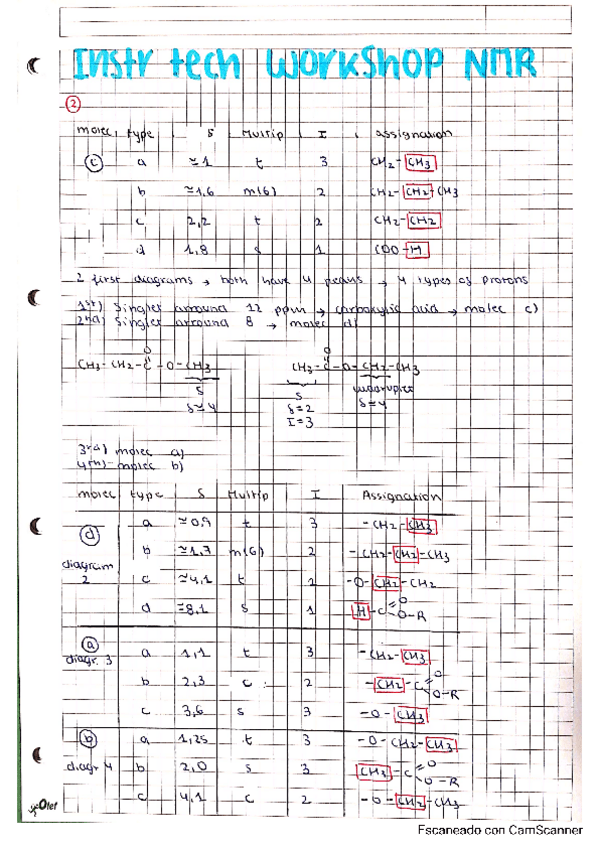 Instr tech WORKSHOP NMR
2
molec. type δ Multip I assignation
c a ≃1 t 3 CH2-CH3
b ≃1,6 m(6) 2 CH2-CH2-CH3
c 2,2 t 2 CH2-CH2
d 1,8 s 1 COO-H
2 first diagrams → both have 4 peaks → 4 types of protons
1st) Singlet arround 12 ppm → carboxylic acid → molec c)
2nd) Singlet arround 8 → molec d)
O O
CH3-CH2-C-O-CH3 CH3-C-O-CH2-CH3
S S quadruplet
δ≃4 δ=2 δ≃4
I=3
3rd) molec a)
4th) molec b)
molec type δ Multip I Assignation
d a ≃0,9 t 3 -CH2-CH3
diagram 2 b ≃1,7 m(6) 2 -CH2-CH2-CH3
c ≃4,1 t 2 -O-CH2-CH2
d ≃8,1 s 1 H-C=O O-R
a diagr. 3 a 1,1 t 3 -CH2-CH3
b 2,3 c 2 -CH2-C=O O-R
c 3,6 s 3 -O-CH3
b a 1,25 t 3 -O-CH2-CH3
diagr 4 b 2,0 s 3 CH3-C=O O-R
c 4,1 c 2 -O-CH2-CH3
Oter
Escaneado con CamScanner